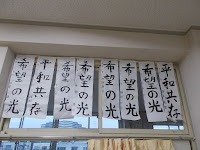 平和共存
希望の光
希望の光
希望の光
希望の光
平和共存
希望の光